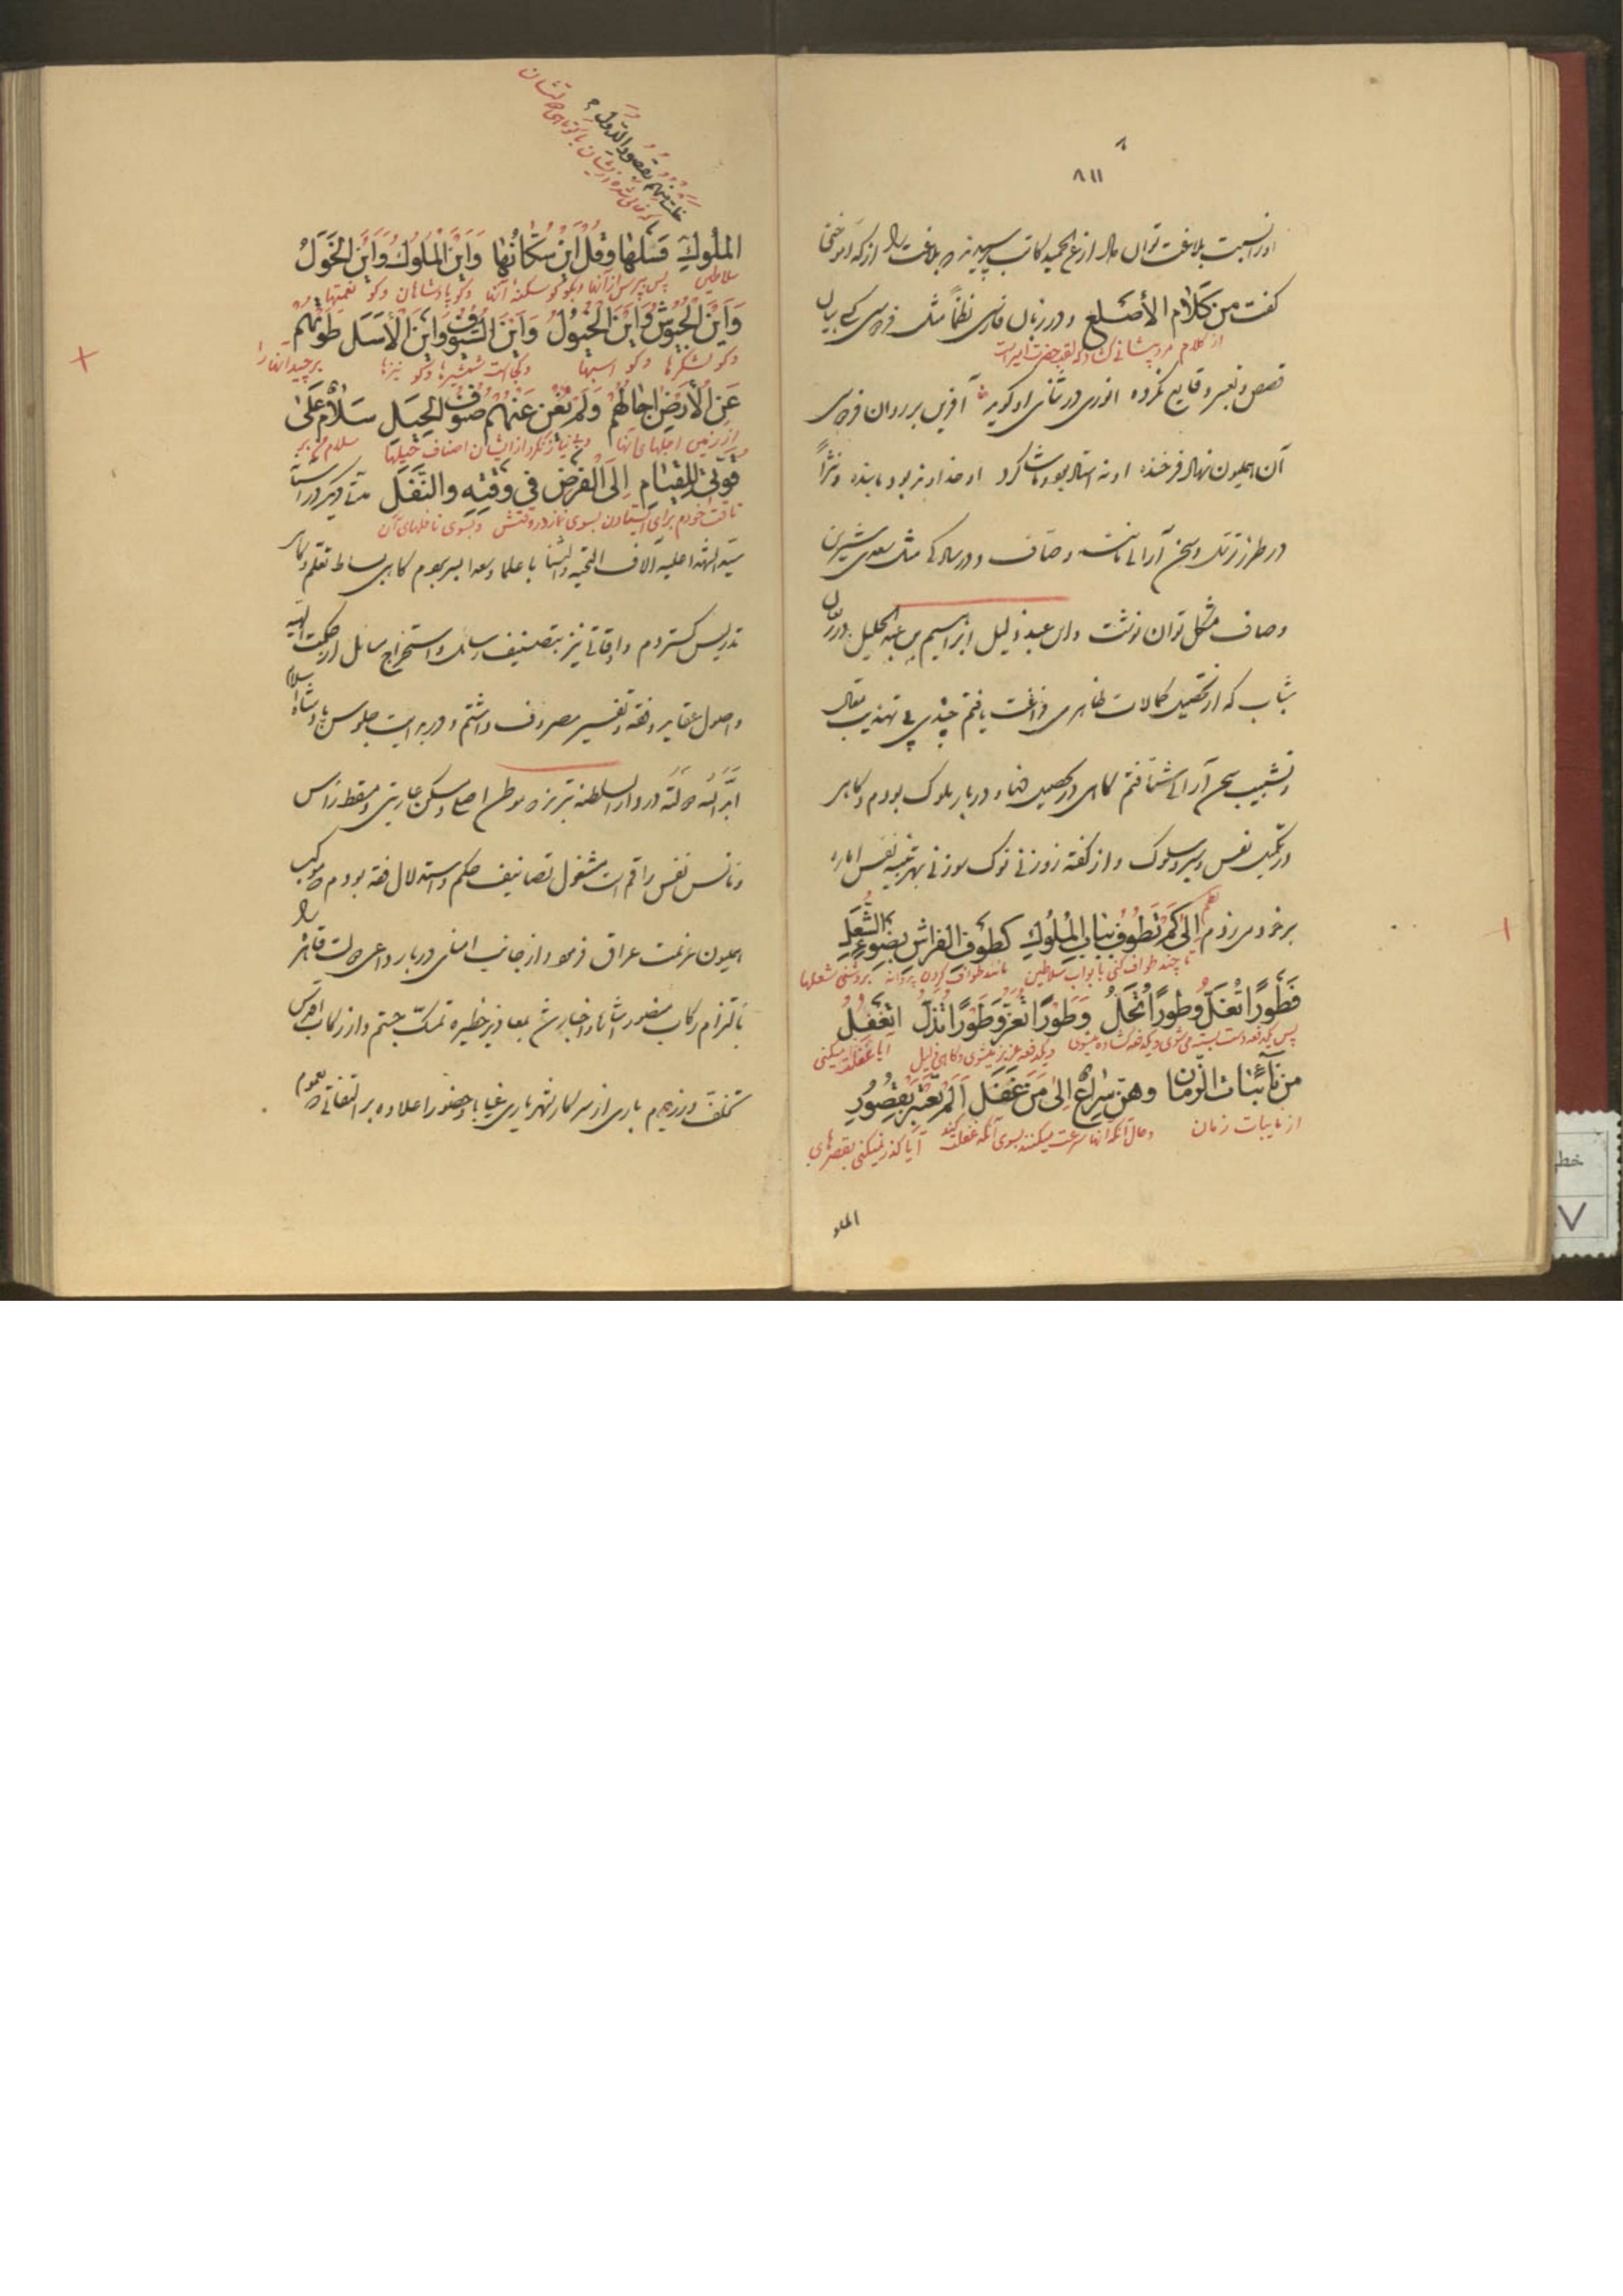 ٨
٨١١
او را نسبت بلاغت توان داد از عبد الحمید کاتب پرسیدند که بلاغت را از که آموختی
گفت من کَلَام الأَصْلَع و در زبان فارسی نظماً مثل فردوسی کسی بیان
از کلام مرد پیشانی گشاده که لقب حضرت امیر است
قصص و تعبیر وقایع نکرده انوری در ثنای او گوید آفرین بر روان فردوسی
آن همایون نهاد فرخنده او نه استاد بود و ما شاگرد او خداوند بود و ما بنده و نثراً
در طرز ترسل و سخن آرائی مانند وصاف و در سادگی مثل سعدی شیرین
وصاف مشکل توان نوشت و این عبد ذلیل ابراهیم بن عبد الجلیل در ریعان
شباب که از تحصیل کمالات ظاهری فراغت یافتم چندی پی تهذیب مقال
و تشبیب سخن آرائی شتافتم گاهی در تحصیل غنا و دربار ملوک بودم و گاهی
در تکمیل نفس و سیر و سلوک و از گفته زوزنی نوک سوزنی بهر تنبیه نفس اماره
بر خود میزدم نظم إِلىٰ كَمْ تَطُوفُ بِبَابِ الْمُلُوكِ كَطَوْفِ الفَرَاشِ بِضَوْءِ الشُّعَلِ
تا چند طواف کنی بابواب سلاطین مانند طواف کردن پروانه بروشنی شعلها
فَطَوْرًا تُغَلُّ وَطَوْرًا تُحَلُّ وَطَوْرًا تُعَزُّ وَطَوْرًا تُذَلُّ اتَغْفُلُ
پس یکدفعه دست بسته می شوی و یکدفعه گشاده میشوی و یکدفعه عزیز میشوی و گاهی ذلیل آیا غفلت میکنی
مِن نَآئِبَاتِ الزَّمَان وهنّ سِرَاعٌ إِلىٰ مَنْ غَفَلَ اَلَمْ تَعْتَبِرْ بِقُصُورِ
از نایبات زمان و حال آنکه آنها سرعت میکنند بسوی آنکه غفلت کند آیا گذر نمیکنی بقصرهای
الملو
خلت منهم بقصور الدول
که خالی شده از ایشان با کوتاهی دولتشان
المُلُوكِ فَسَلْهَا وَقُلْ أَيْنَ سُكَّانُهَا وَأَيْنَ الْمُلُوكُ وَأَيْنَ الخَوَلُ
سلاطین پس بپرس از آنها و بگو کو سکنه آنها و کو پادشاهان و کو نعمتها
وَأَيْنَ الجُيُوشُ وَأَيْنَ الخُيُولُ وَأَيْنَ السُّيُوفُ وَأَيْنَ الأَسَلُ طَوَتْهُمْ
و کو لشکرها و کو اسبها و کجاست شمشیرها و کو نیزها برچید آنها را
عَنِ الأَرْضِ اجَالُهُمْ وَلَمْ تُغْنِ عَنْهُمْ صُنُوفُ الحِيَلِ سَلاَمٌ عَلىٰ
از زمین اجلهای آنها و بی نیاز نکرد از ایشان اصناف حیلها سلام بر
قُوَّتي لِلْقِيَامِ إِلَى الفَرْضِ فِي وَقْتِهِ وَالنَّفَلِ مدتی دیگر در آستان
طاقت خودم برای ایستادن بسوی نماز در وقتش و بسوی نافلهای آن
سید الشهدا علیه آلاف التحیة و الثنا با علما و سعدا بسر بردم گاهی بساط تعلم و گاهی
تدریس گستردم و اوقاتی نیز بتصنیف رسائل و استخراج مسائل از حکمت الهیه
و اصول عقاید و فقه و تفسیر مصروف داشتم و در بدایت جلوس پادشاه اسلام
ابّد الله دولته در دار السلطنه تبریز که موطن اصلی و مسکن عاریتی و مسقط راس
و مانس نفس راقم است مشغول تصانیف حکم و استدلال فقه بودم که موکب
همایون عزیمت عراق فرمود و از جانب امنای دربار داعی دولت قاهره را
بالتزام رکاب منصور اشارت و اخبار شد بمعاذیر خطیره تمسک جستم و از رکاب اقدس
تخلف ورزیدم باری از سرکار شهریاری غیابا و حضورا علاوه بر التفات عموم
خط